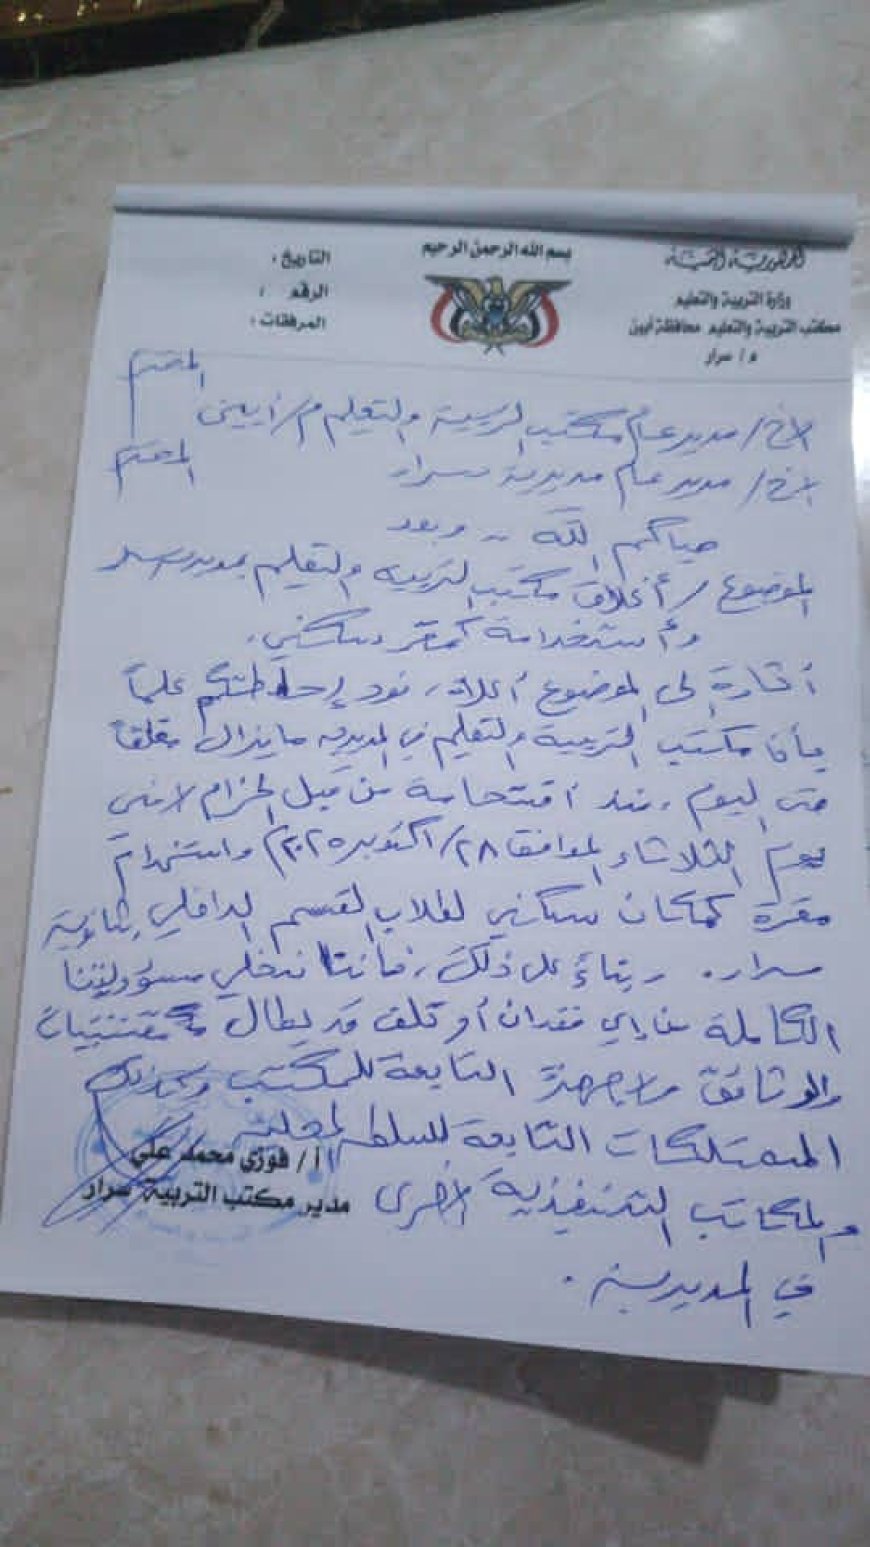 الجمهورية اليمنية
وزارة التربية والتعليم
مكتب التربية والتعليم محافظة أبين
م / سرار
بسم الله الرحمن الرحيم
التاريخ :
الرقم :
المرفقات :
الأخ / مدير عام مكتب التربية والتعليم م / أبين المحترم
الأخ / مدير عام مديرية سرار المحترم
حياكم الله .. وبعد
الموضوع / أغلاق مكتب التربية والتعليم بمديرية سرار
وأستخدامة كمقر سكني .
أشارة إلى الموضوع أعلاه ، نود إحاطتكم علماً
بأن مكتب التربية والتعليم في المديرية مايزال مغلقاً
حتى اليوم ، منذ أقتحامة من قبل الحزام الأمني
يوم الثلاثاء الموافق ٢٨ / أكتوبر ٢٠٢٥م واستخدام
مقرة كمكان سكني لطلاب القسم الداخلي بثانوية
سرار . وبناءً على ذلك ، فأننا نخلي مسؤوليتنا
الكاملة عن إي فقدان أو تلف قد يطال مقتنيات
والوثائق والأجهزة التابعة للمكتب وكذلك
الممتلكات التابعة للسلطة المحلية
والمكاتب التنفيذية الأخرى
في المديرية .
أ / فوزي محمد علي
مدير مكتب التربية سرار